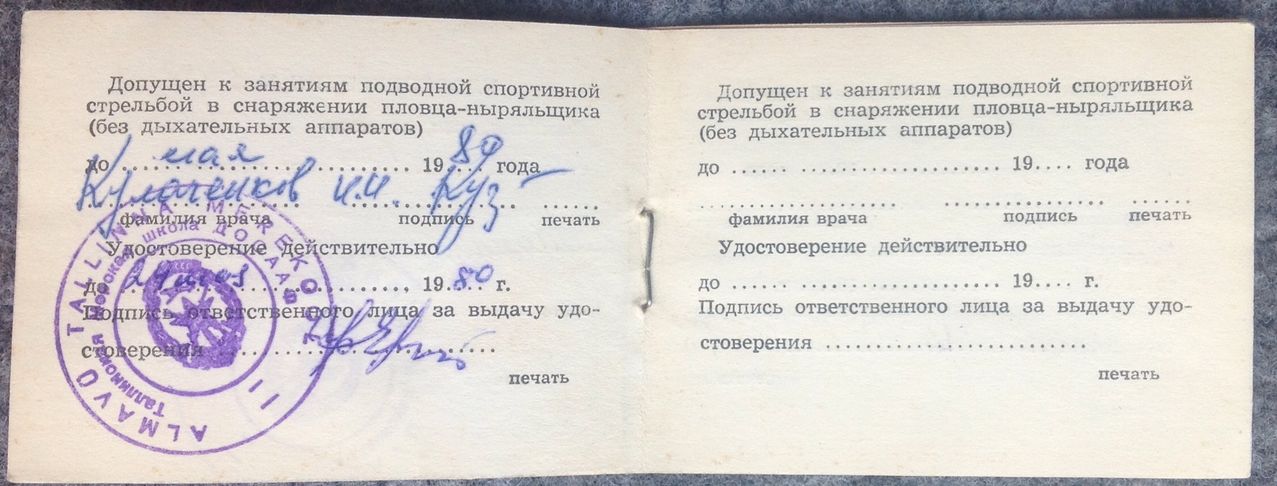 Допущен к занятиям подводной спортивной
стрельбой в снаряжении пловца-ныряльщика
(без дыхательных аппаратов)
до мая 1980 года
фамилия врача подпись печать
Удостоверение действительно
до 1980 г.
Подпись ответственного лица за выдачу удо-
стоверения
печать
ALMAVÜ TALLINNA MEREKOOL
Таллинская морская школа ДОСААФ
Допущен к занятиям подводной спортивной
стрельбой в снаряжении пловца-ныряльщика
(без дыхательных аппаратов)
до ...... ..................... 19.... года
фамилия врача подпись печать
Удостоверение действительно
до ...... ..................... 19.... г.
Подпись ответственного лица за выдачу удо-
стоверения ............................
печать